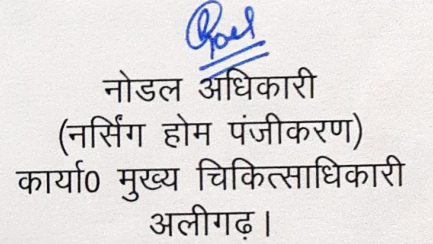 नोडल अधिकारी
(नर्सिंग होम पंजीकरण)
कार्या0 मुख्य चिकित्साधिकारी
अलीगढ़।